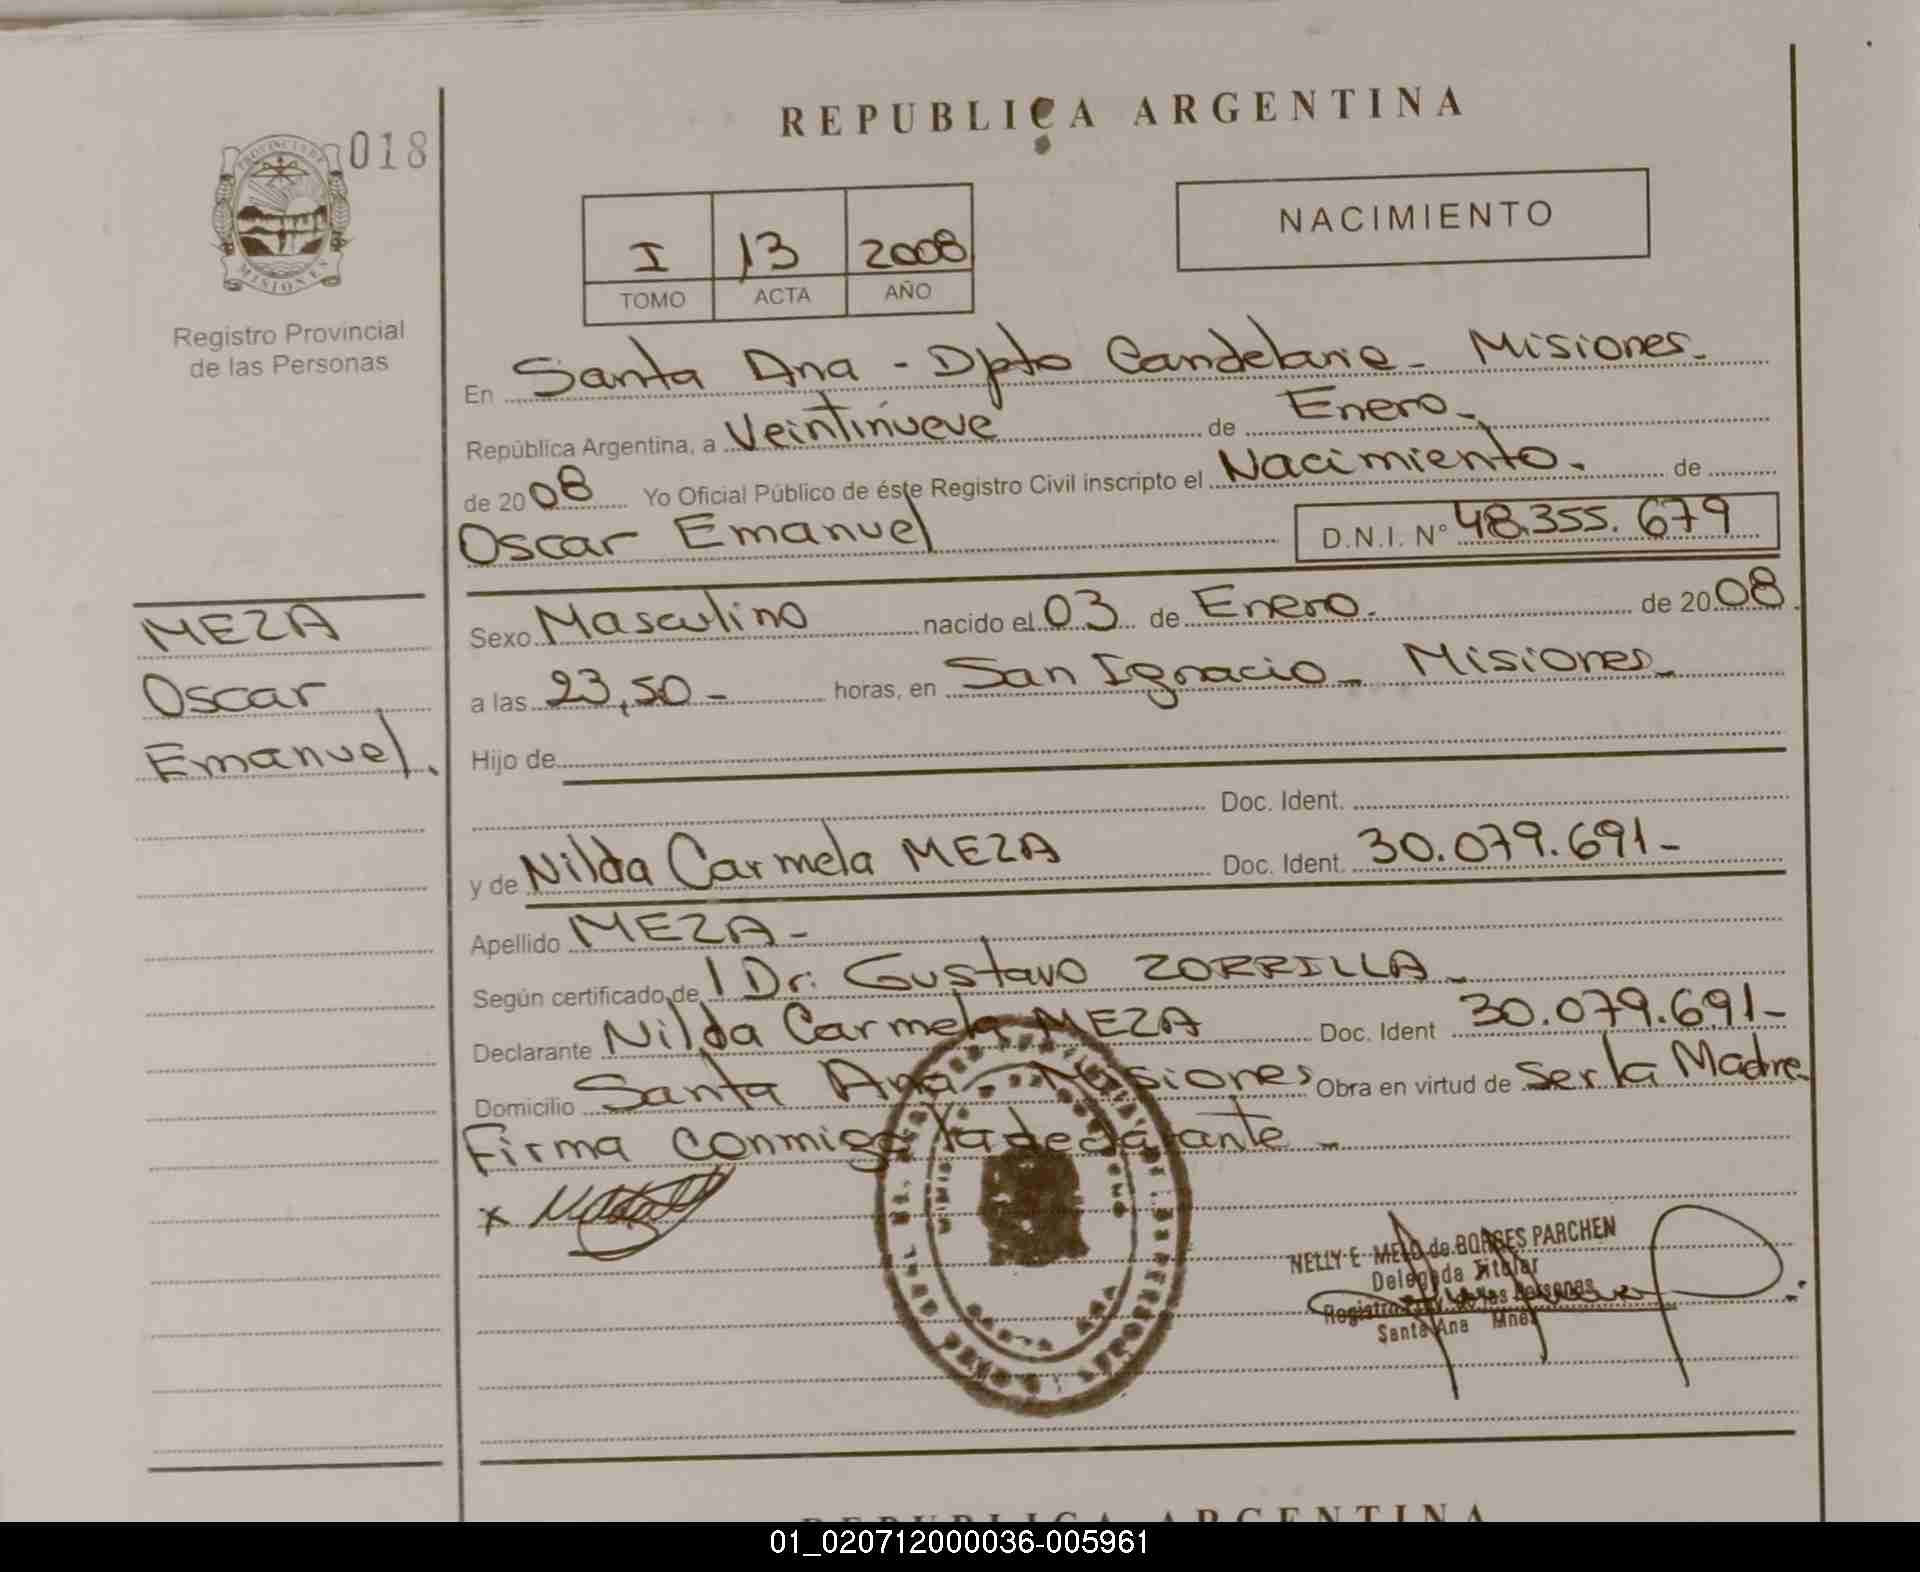 REPUBLICA ARGENTINA
018
PROVINCIA DE
MISIONES
Registro Provincial
de las Personas
NACIMIENTO
I 13 2008
TOMO ACTA AÑO
En Santa Ana - Dpto Candelaria - Misiones.
República Argentina, a Veintinueve de Enero.
de 2008 Yo Oficial Público de éste Registro Civil inscripto el Nacimiento. de
Oscar Emanuel D.N.I. N° 48.355.679
MEZA
Oscar
Emanuel.
Sexo Masculino nacido el 03 de Enero. de 2008.
a las 23,50 - horas, en San Ignacio - Misiones -
Hijo de
Doc. Ident.
y de Nilda Carmela MEZA Doc. Ident. 30.079.691-
Apellido MEZA -
Según certificado de l Dr. Gustavo ZORRILLA -
Declarante Nilda Carmela MEZA Doc. Ident 30.079.691-
Domicilio Santa Ana - Misiones Obra en virtud de Ser la Madre.
Firma conmigo la declarante -
x
NELLY E. MELO de BORGES PARCHEN
Delegada Titular
Registro Prov. de las Personas
Santa Ana Mnes
REPUBLICA ARGENTINA
01_020712000036-005961